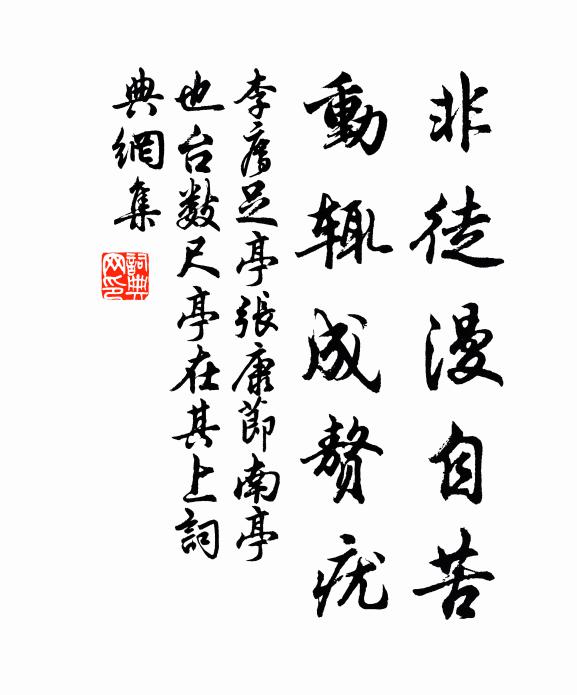 非徒漫自苦
動輒成贅疣
李廌足亭張康節南亭
也台数尺亭在其上詞
典網集
詞典网印